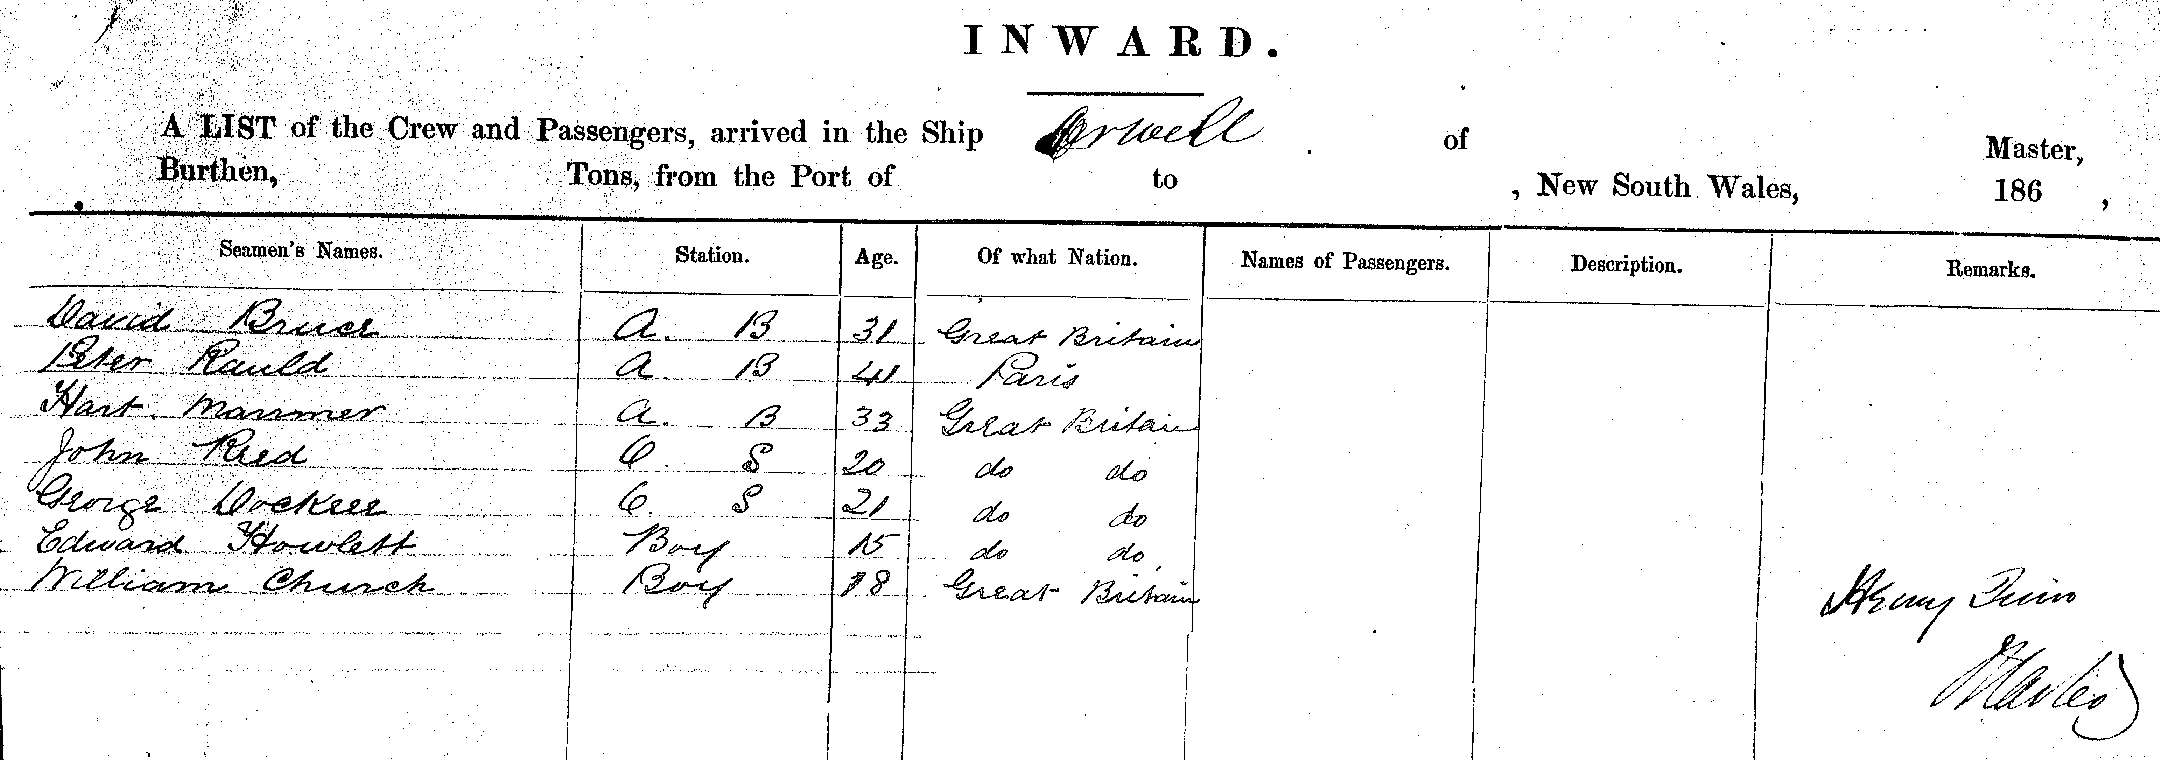 INWARD.
A LIST of the Crew and Passengers, arrived in the Ship Orwell of Master,
Burthen, Tons, from the Port of to , New South Wales, 186 ,
Seamen's Names. Station. Age. Of what Nation. Names of Passengers. Description. Remarks.
David Bruce A. B 31 Great Britain
Peter Rauld A B 41 Paris
Hart A. B 33 Great Britain
John Reed O. S 20 do do
George Dockree O. S 21 do do
Edward Howlett Boy 15 do do
William Church Boy 18 Great Britain
Henry
Master